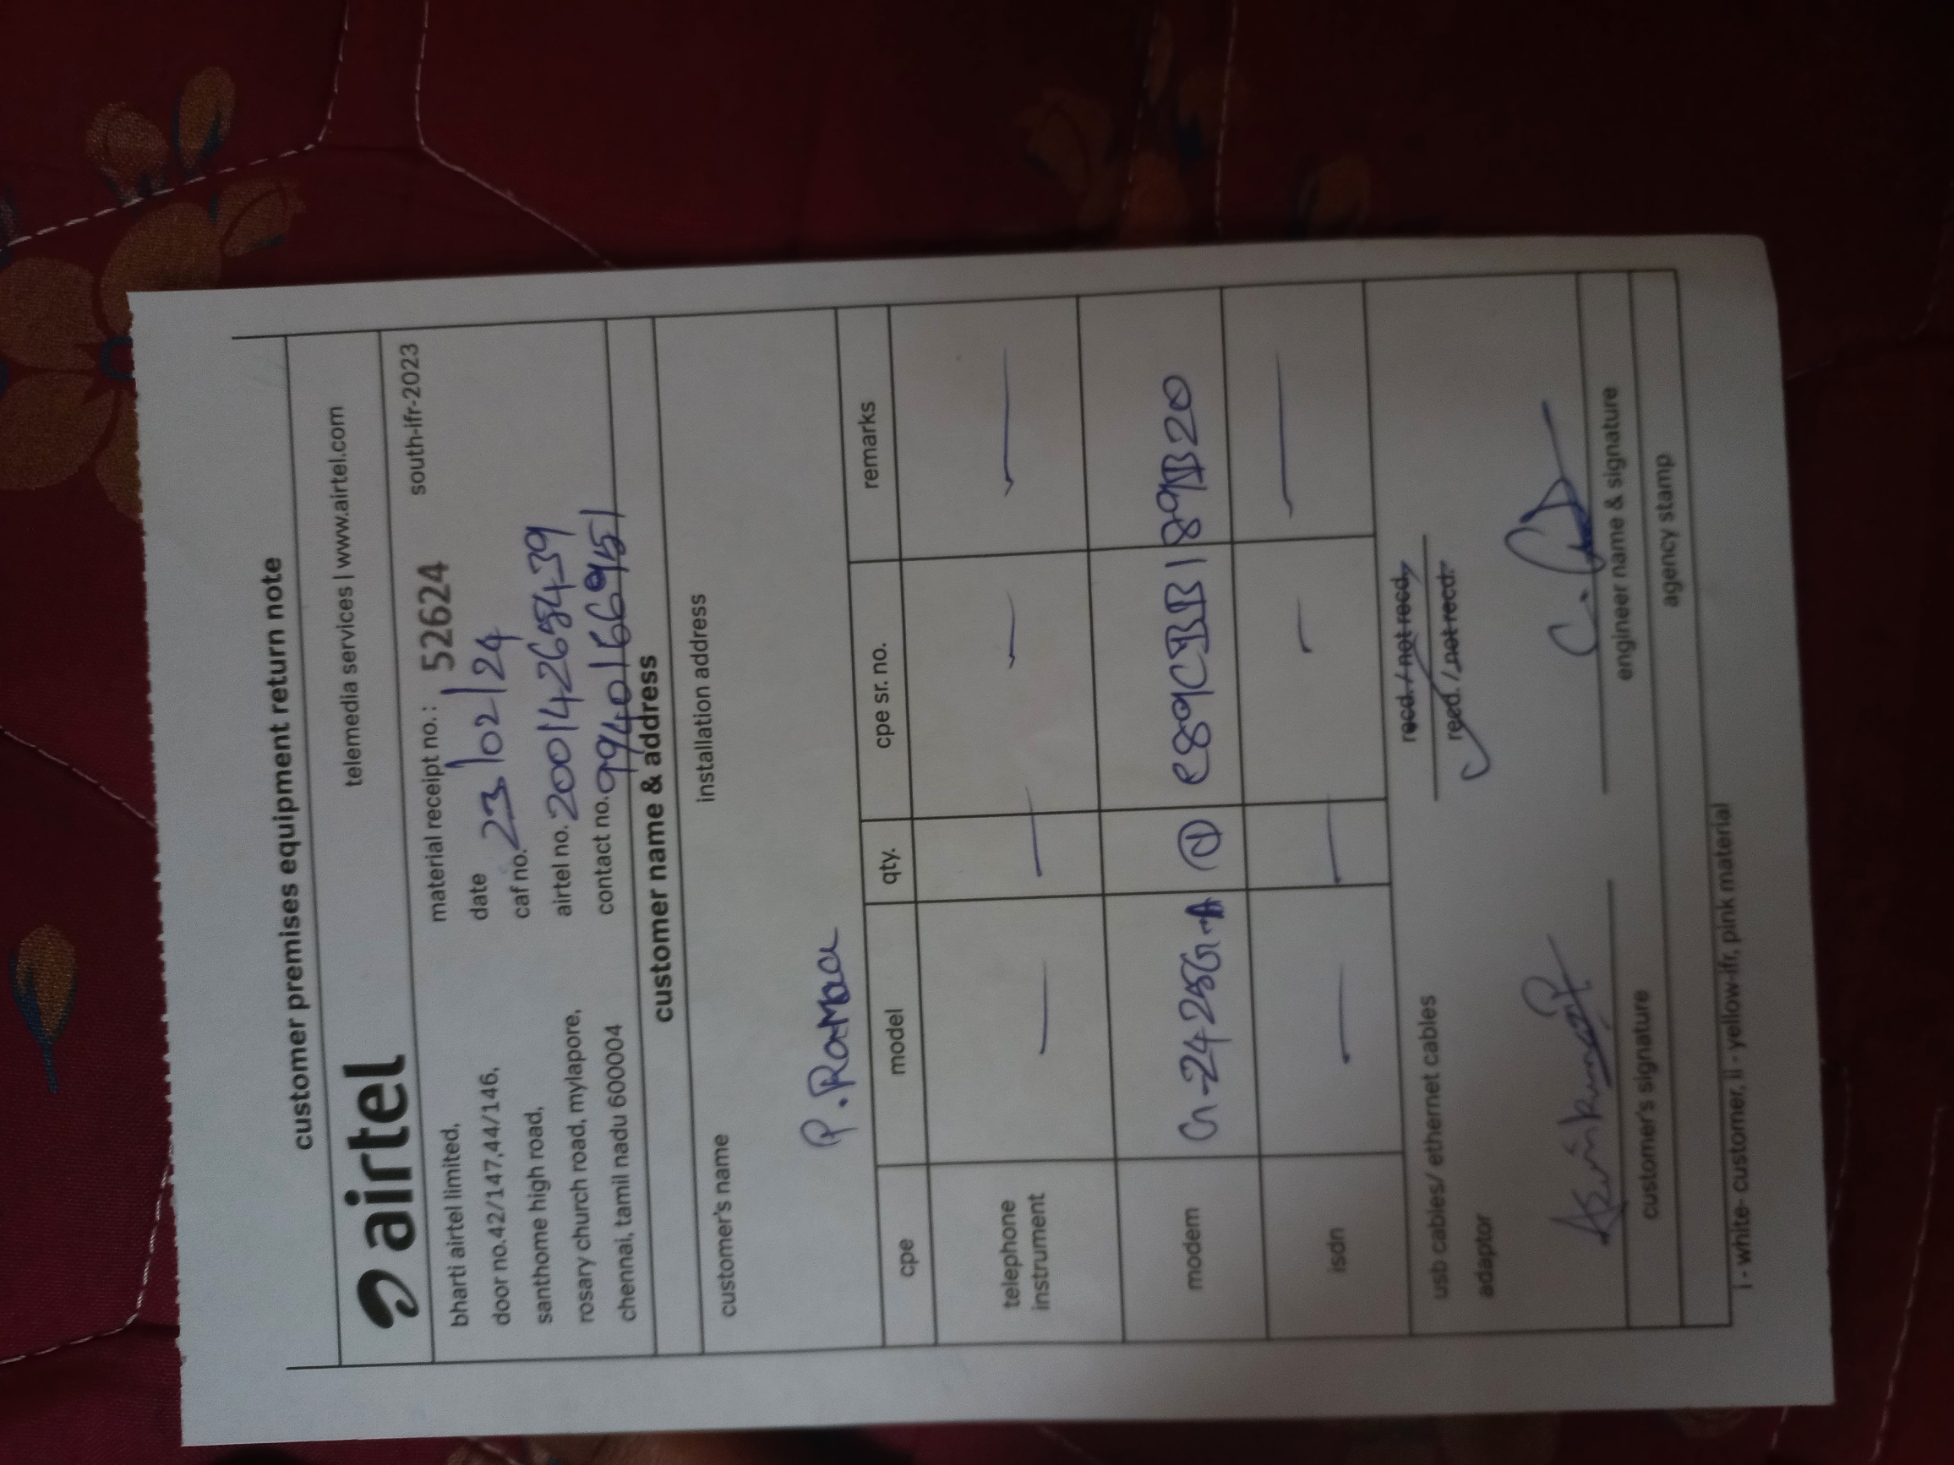 customer premises equipment return note
airtel
telemedia services | www.airtel.com
bharti airtel limited,
door no.42/147,44/146,
santhome high road,
rosary church road, mylapore,
chennai, tamil nadu 600004
material receipt no. : 52624
south-ifr-2023
date 23/02/24
caf no.
airtel no. 20014265439
contact no. 9940166951
customer name & address
customer's name
installation address
P. Ramaa
cpe model qty. cpe sr. no. remarks
telephone
instrument — — — —
modem G-2425G-A 1 e89CBB189B20
isdn — — — —
usb cables/ ethernet cables recd. / not recd.
adaptor recd. / not recd.
customer's signature
engineer name & signature
agency stamp
i - white- customer, ii - yellow-ifr, pink material